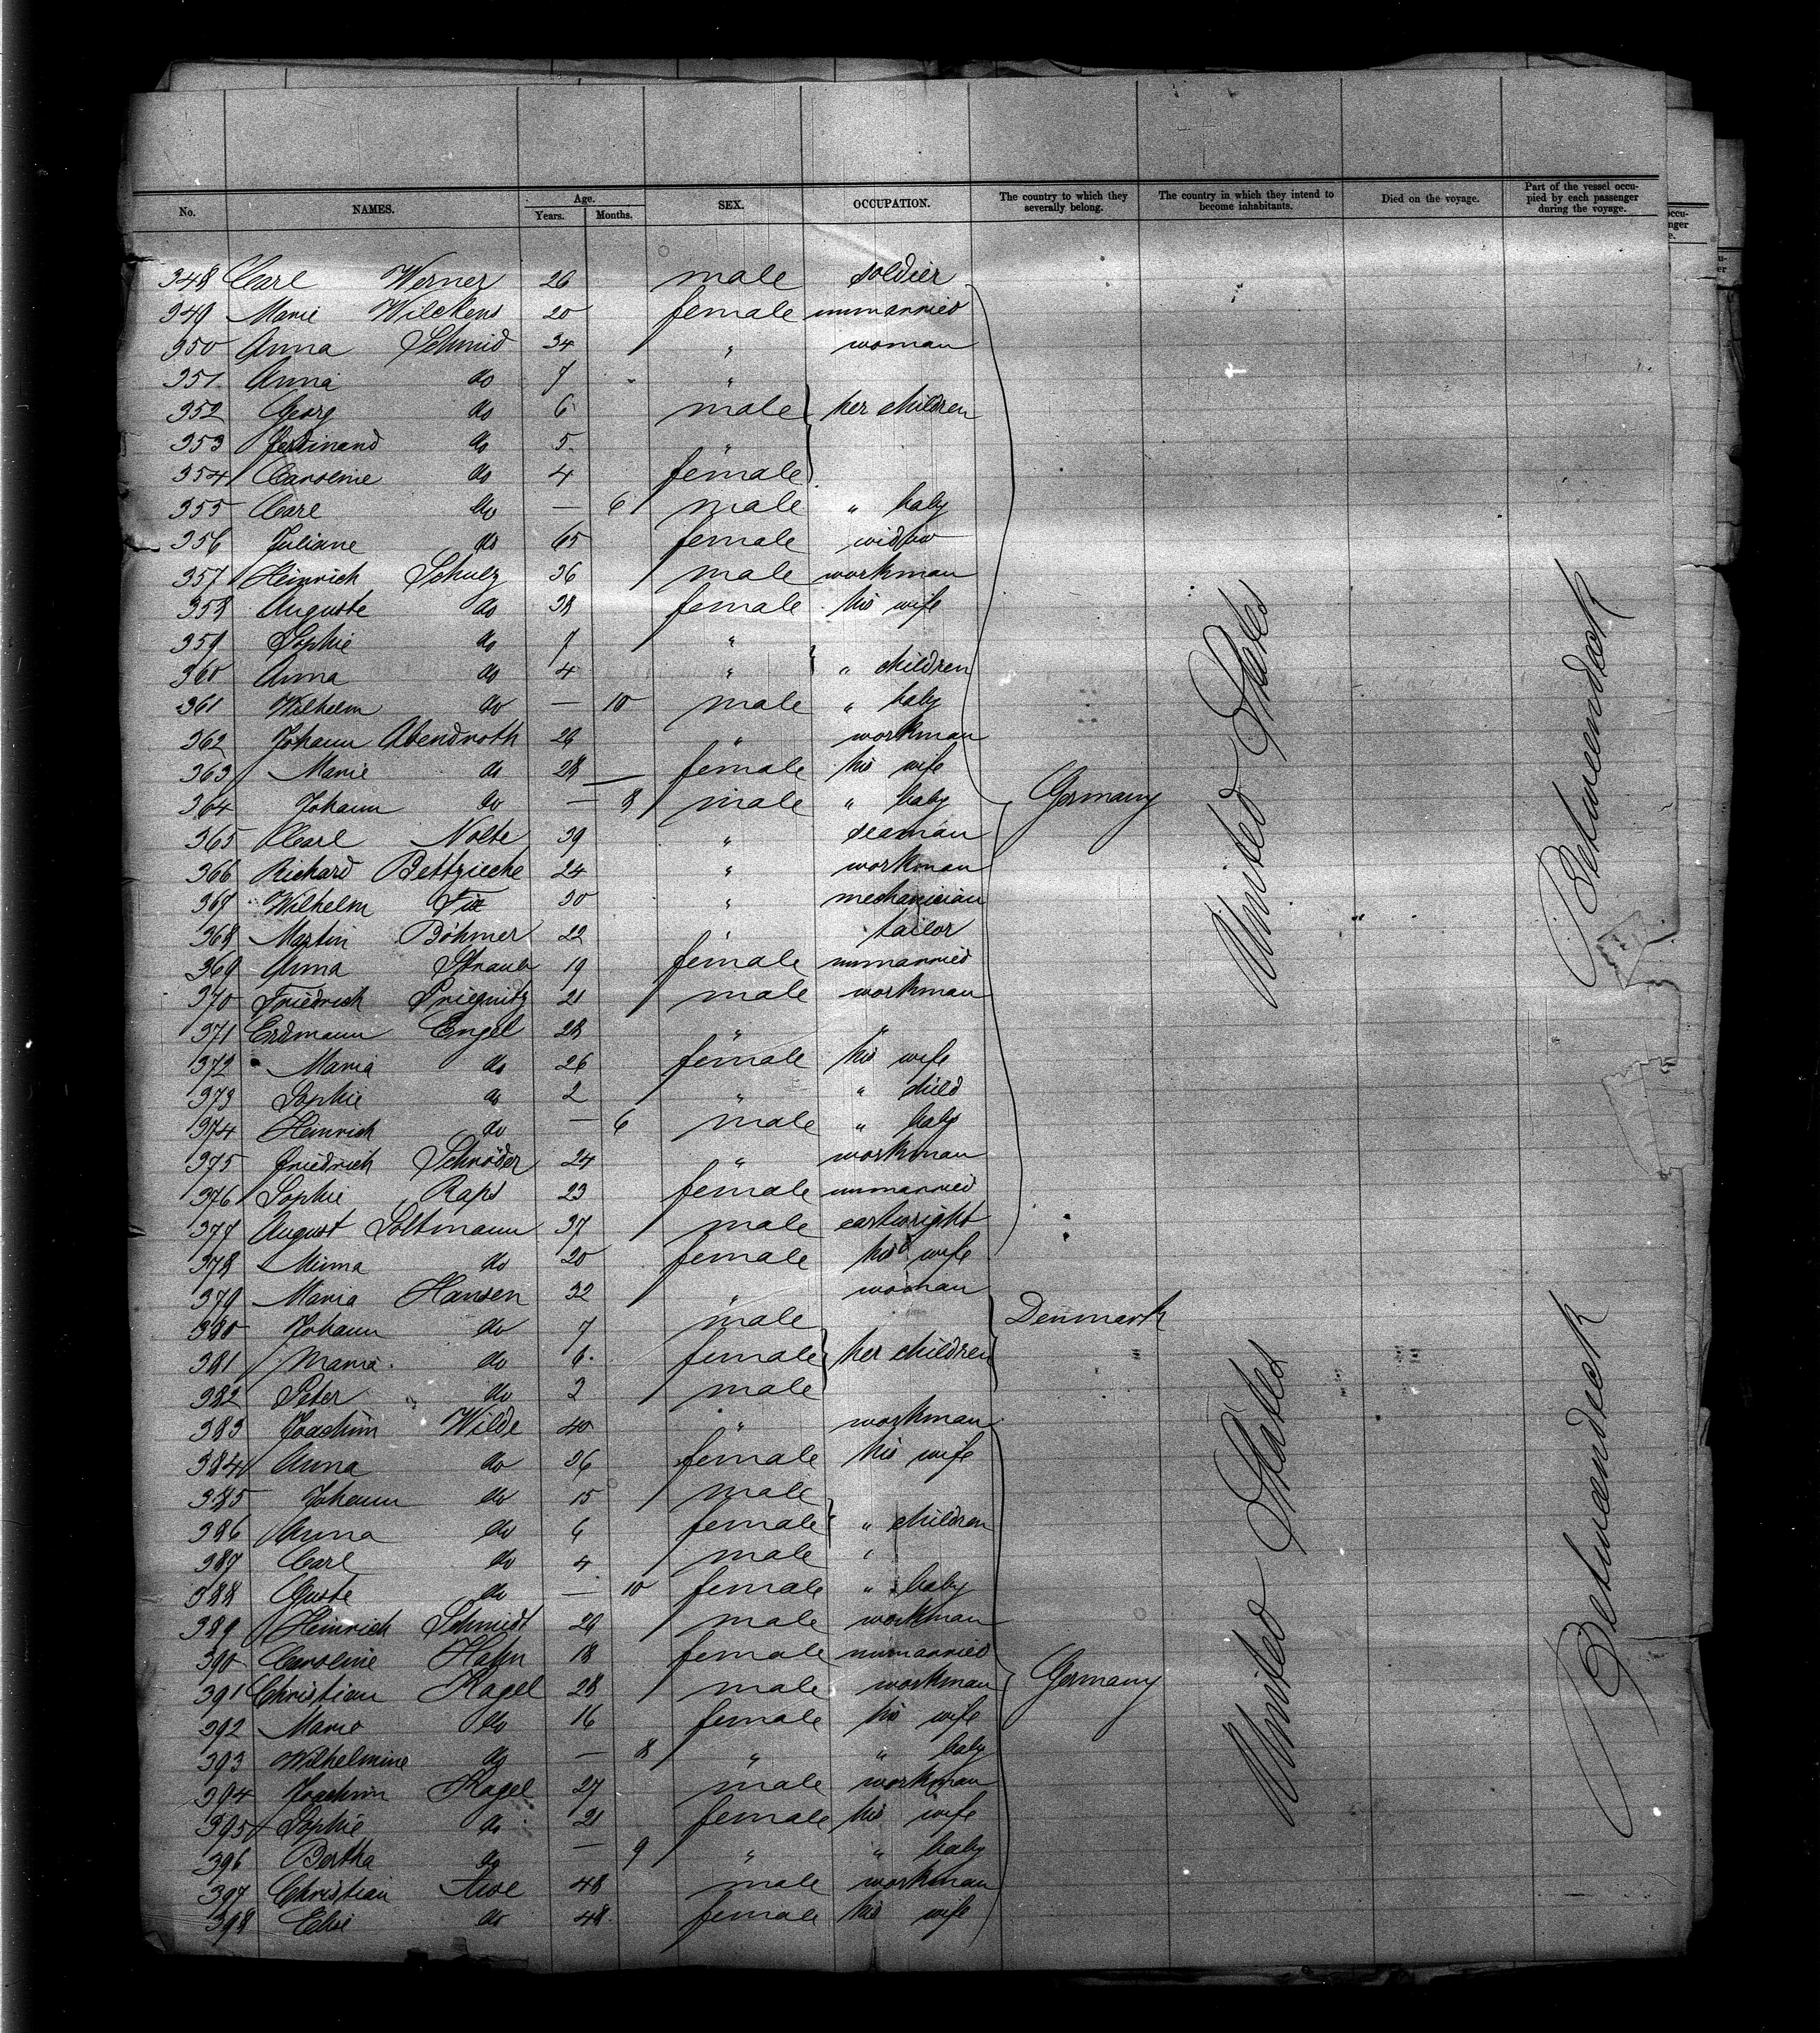 No. NAMES. Age. Years. Months. SEX. OCCUPATION. The country to which they severally belong. The country in which they intend to become inhabitants. Died on the voyage. Part of the vessel occupied by each passenger during the voyage.
348 Carl Werner 26 male soldier
349 Marie Wilckens 20 female unmarried
350 Anna Schmid 34 " woman
351 Anna do 7 "
352 Georg do 6 male her children
353 Ferdinand do 5 "
354 Caroline do 4 female
355 Carl do — 6 male " baby
356 Juliane do 65 female widow
357 Heinrich Schulz 36 male workman
358 Auguste do 38 female his wife
359 Sophie do 7 "
360 Anna do 4 " " children
361 Wilhelm do — 10 male " baby
362 Johann Abendroth 28 " workman
363 Marie do 28 female his wife
364 Johann do — 8 male " baby Germany United States Betweendeck
365 Carl Nolte 39 " seaman
366 Richard Bettziecke 24 " workman
367 Wilhelm 30 " mechanician
368 Martin Böhmer 22 " tailor
369 Anna Straub 19 female unmarried
370 Friedrich Priegnitz 21 male workman
371 Erdmann Engel 28 " "
372 Maria do 26 female his wife
373 Sophie do 2 " " child
374 Heinrich do — 6 male " baby
375 Friedrich Schröder 24 " workman
376 Sophie Raps 23 female unmarried
377 August Soltmann 37 male cartwright
378 Minna do 20 female his wife
379 Maria Hansen 32 " woman
380 Johann do 7 male Denmark
381 Maria do 6 female her children
382 Peter do 2 male
383 Joachim Wilde 40 " workman
384 Anna do 36 female his wife
385 Johann do 15 male
386 Anna do 6 female " children
387 Carl do 4 male "
388 Guste do — 10 female " baby
389 Heinrich Schmidt 29 male workman
390 Caroline Hahn 18 female unmarried
391 Christian Kagel 28 male workman Germany United States Betweendeck
392 Marie do 16 female his wife
393 Wilhelmine do — 8 " " baby
394 Joachim Kagel 27 male workman
395 Sophie do 21 female his wife
396 Bertha do — 9 " " baby
397 Christian 48 male workman
398 Elise do 48 female his wife